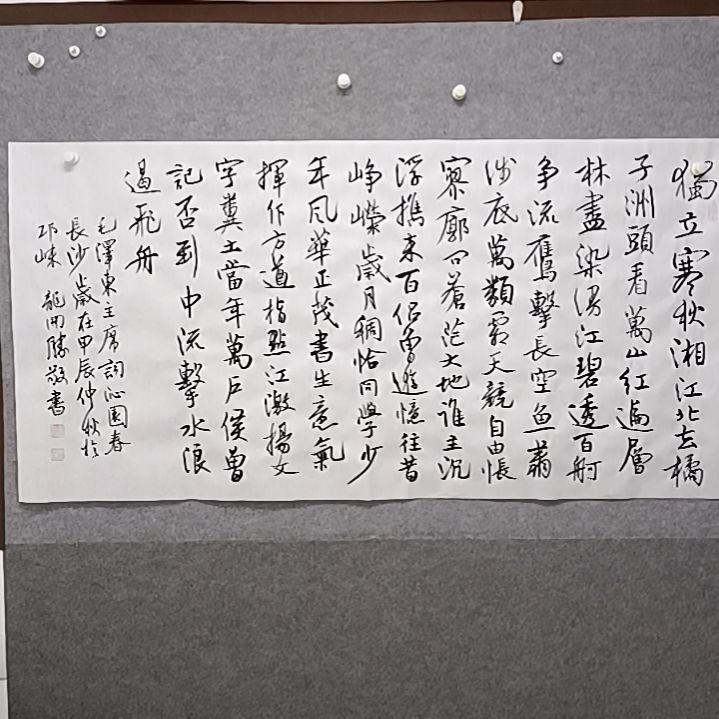 獨立寒秋湘江北去橘
子洲頭看萬山紅遍層
林盡染漫江碧透百舸
争流鷹擊長空魚翔
浅底萬類霜天競自由悵
寥廓问蒼茫大地谁主沉
浮携來百侣曾遊憶往昔
峥嵘歲月稠恰同學少
年风華正茂書生意氣
揮作方遒指點江激揚文
字糞土當年萬户侯曾
記否到中流擊水浪
遏飛舟
毛澤東主席詞沁園春
長沙歲在甲辰仲秋於
邛崍 龍開勝敬書